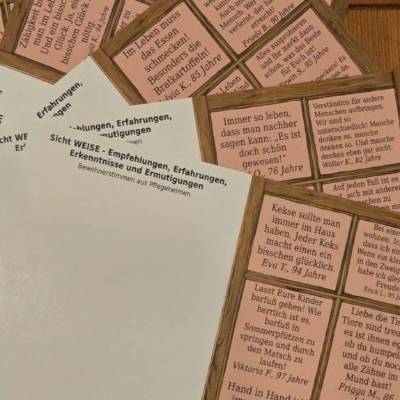 Zähigkeit
man im Le
Und ein bissc
Glück. Ein
bisschen G
Im Leben muss
das Essen
schmecken!
Besonders die
Bratkartoffeln!
K., 85 Jahre
Frieda B., 90 Jahre
Alles ausprobieren
und ihr merkt dann
schon, was das beste
für Euch ist!
S., 95 Jahre
Immer so leben,
dass man nachher
sagen kann: „Es ist
doch schön
gewesen!"
O., 76 Jahre
Verständnis für andere
Menschen aufbringen.
Wir sind so
unterschiedlich! Manche
denken so, manche
denken so. Und manche
denken eben gar nicht.
Walter K., 82 Jahre
Auf jeden Fall ist es
Erfahrungen,
Sicht WE
fehlungen, Erfahrungen,
mutigungen
Sicht WEISE - Empfehlungen, Erfahrungen,
Erkenntnisse und Ermutigungen
Bewohnerstimmen aus Pflegeheimen
Kekse sollte man
immer im Haus
haben. Jeder Keks
macht einen ein
bisschen glücklich.
Eva T., 94 Jahre
Bei eine
wohnen. Ic
dass ich ein
Wenn ein kle
in den Zweig
habe ich gle
Freude
Erich L., 95
Lasst Eure Kinder
barfuß gehen! Wie
herrlich ist es,
barfuß in
Sommerpfützen zu
springen und durch
den Matsch zu
laufen!
Viktoria F., 97 Jahre
Liebe die Tie
Tiere sind treu
es ist ihnen eg
ob du humpel
und ob du noc
alle Zähne im
Mund hast!
Frigga M., 86
Hand in Hand i